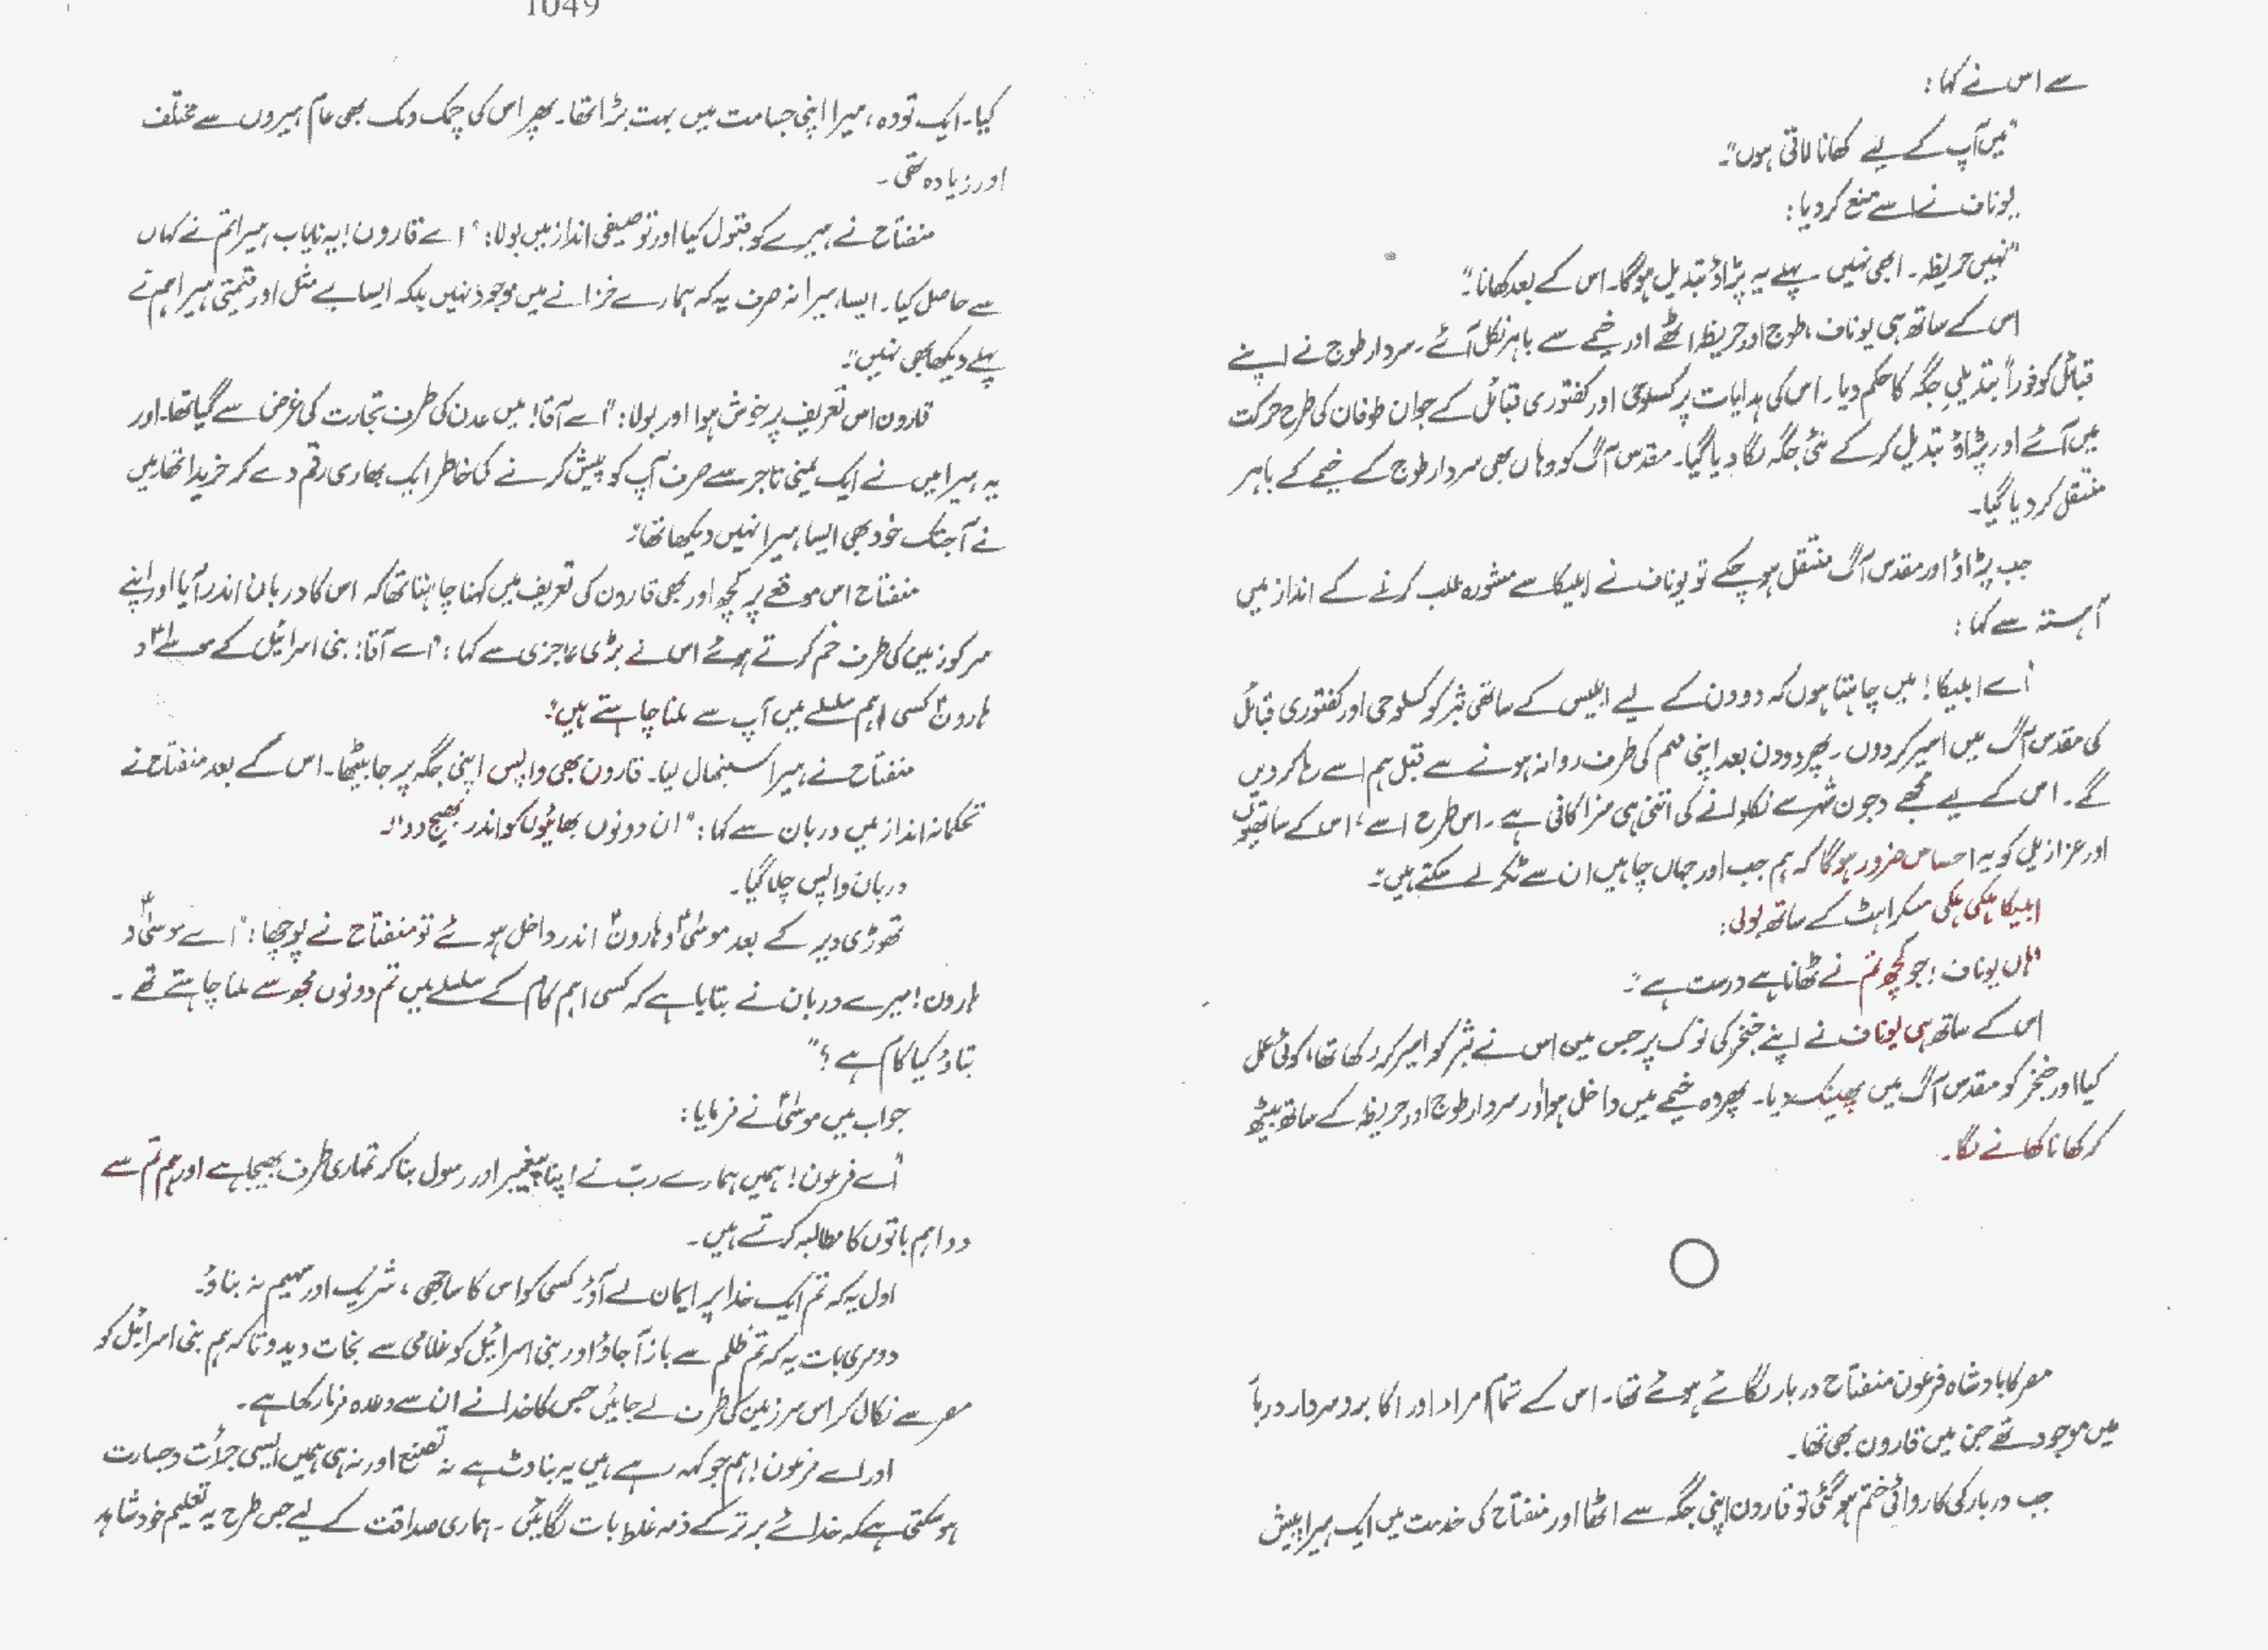 سے اس نے کہا:
"میں آپ کے لیے کھانا لاتی ہوں"۔
یوناف نے اسے منع کر دیا:
"نہیں حریظہ۔ ابھی نہیں۔ پہلے یہ پڑاؤ تبدیل ہو گا۔ اس کے بعد کھانا"۔
اس کے ساتھ ہی یوناف، طوج اور حریظہ اٹھے اور خیمے سے باہر نکل آئے۔ سردار طوج نے اپنے
قبائل کو فوراً تبدیلیِ جگہ کا حکم دیا۔ اس کی ہدایات پر کسلوحی اور کفتوری قبائل کے جوان طوفان کی طرح حرکت
میں آئے اور پڑاؤ تبدیل کر کے نئی جگہ لگا دیا گیا۔ مقدس آگ کو وہاں بھی سردار طوج کے خیمے کے باہر
منتقل کر دیا گیا۔
جب پڑاؤ اور مقدس آگ منتقل ہو چکے تو یوناف نے ابلیکا سے مشورہ طلب کرنے کے انداز میں
آہستہ سے کہا:
"اے ابلیکا! میں چاہتا ہوں کہ دو دن کے لیے ابلیس کے ساتھی ثبر کو کسلوحی اور کفتوری قبائل
کی مقدس آگ میں اسیر کر دوں۔ پھر دو دن بعد اپنی مہم کی طرف روانہ ہونے سے قبل ہم اسے رہا کر دیں
گے۔ اس کے لیے مجھے دجون شہر سے نکلوانے کی اتنی ہی سزا کافی ہے۔ اس طرح اسے، اس کے ساتھیوں
اور عزازیل کو یہ احساس ضرور ہو گا کہ ہم جب اور جہاں چاہیں ان سے ٹکر لے سکتے ہیں"۔
ابلیکا ہلکی ہلکی مسکراہٹ کے ساتھ بولی:
"ہاں یوناف! جو کچھ تم نے ٹھانا ہے درست ہے"۔
اس کے ساتھ ہی یوناف نے اپنے خنجر کی نوک پر جس میں اس نے ثبر کو اسیر کر رکھا تھا، کوئی عمل
کیا اور خنجر کو مقدس آگ میں پھینک دیا۔ پھر وہ خیمے میں داخل ہوا اور سردار طوج اور حریظہ کے ساتھ بیٹھ
کر کھانا کھانے لگا۔
مصر کا بادشاہ فرعون منفتاح دربار لگائے ہوئے تھا۔ اس کے تمام امراء اور اکابر و سردار دربار
میں موجود تھے جن میں قارون بھی تھا۔
جب دربار کی کاروائی ختم ہو گئی تو قارون اپنی جگہ سے اٹھا اور منفتاح کی خدمت میں ایک ہیرا پیش
1049
کیا۔ ایک تو وہ ہیرا اپنی جسامت میں بہت بڑا تھا۔ پھر اس کی چمک دمک بھی عام ہیروں سے مختلف
اور زیادہ تھی۔
منفتاح نے ہیرے کو قبول کیا اور توصیفی انداز میں بولا: "اے قارون! یہ نایاب ہیرا تم نے کہاں
سے حاصل کیا۔ ایسا ہیرا نہ صرف یہ کہ ہمارے خزانے میں موجود نہیں بلکہ ایسا بے مثل اور قیمتی ہیرا ہم نے
پہلے دیکھا بھی نہیں"۔
قارون اس تعریف پر خوش ہوا اور بولا: "اے آقا! میں عدن کی طرف تجارت کی غرض سے گیا تھا۔ اور
یہ ہیرا میں نے ایک یمنی تاجر سے صرف آپ کو پیش کرنے کی خاطر ایک بھاری رقم دے کر خریدا تھا۔ میں
نے آج تک خود بھی ایسا ہیرا نہیں دیکھا تھا"۔
منفتاح اس موقعے پر کچھ اور بھی قارون کی تعریف میں کہنا چاہتا تھا کہ اس کا دربان اندر آیا اور اپنے
سر کو زمین کی طرف خم کرتے ہوئے اس نے بڑی عاجزی سے کہا: "اے آقا! بنی اسرائیل کے موسیٰؑ و
ہارونؑ کسی اہم سلسلے میں آپ سے ملنا چاہتے ہیں"۔
منفتاح نے ہیرا سنبھال لیا۔ قارون بھی واپس اپنی جگہ پر جا بیٹھا۔ اس کے بعد منفتاح نے
تحکمانہ انداز میں دربان سے کہا: "ان دونوں بھائیوں کو اندر بھیج دو"۔
دربان واپس چلا گیا۔
تھوڑی دیر کے بعد موسیٰؑ و ہارونؑ اندر داخل ہوئے تو منفتاح نے پوچھا: "اے موسیٰؑ و
ہارون! میرے دربان نے بتایا ہے کہ کسی اہم کام کے سلسلے میں تم دونوں مجھ سے ملنا چاہتے تھے۔
بتاؤ کیا کام ہے؟"
جواب میں موسیٰؑ نے فرمایا:
"اے فرعون! ہمیں ہمارے رب نے اپنا پیغمبر اور رسول بنا کر تمہاری طرف بھیجا ہے اور ہم تم سے
دو اہم باتوں کا مطالبہ کرتے ہیں۔
اول یہ کہ تم ایک خدا پر ایمان لے آؤ۔ کسی کو اس کا ساجھی، شریک اور سہیم نہ بناؤ۔
دوسری بات یہ کہ تم ظلم سے باز آ جاؤ اور بنی اسرائیل کو غلامی سے نجات دیدو تاکہ ہم بنی اسرائیل کو
مصر سے نکال کر اس سرزمین کی طرف لے جائیں جس کا خدا نے ان سے وعدہ فرما رکھا ہے۔
اور اے فرعون! ہم جو کہہ رہے ہیں یہ بناوٹ ہے نہ تصنع اور نہ ہی ہمیں ایسی جرأت و جسارت
ہو سکتی ہے کہ خدائے برتر کے ذمہ غلط بات لگائیں۔ ہماری صداقت کے لیے جس طرح یہ تعلیم خود شاہد